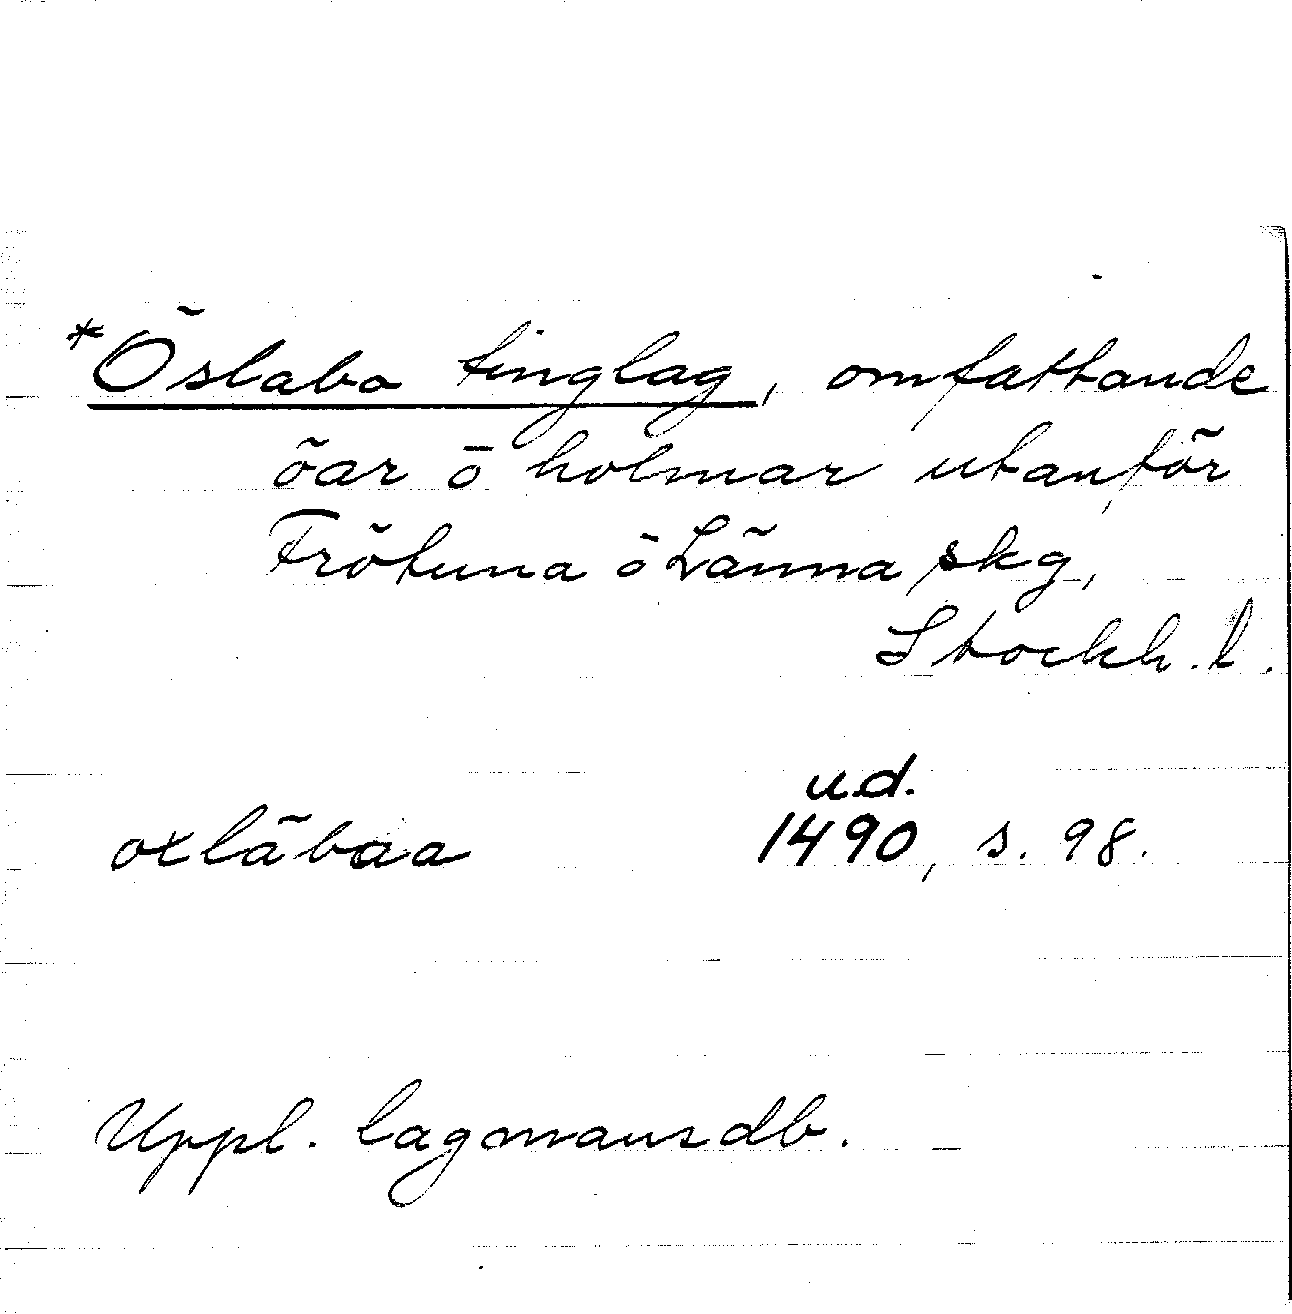 *Öslabo tinglag, omfattande
öar o holmar utanför
Frötuna o Länna skg,
Stockh. l.
u.d.
oxläbaa 1490, s. 98.
Uppl. lagmansdb.